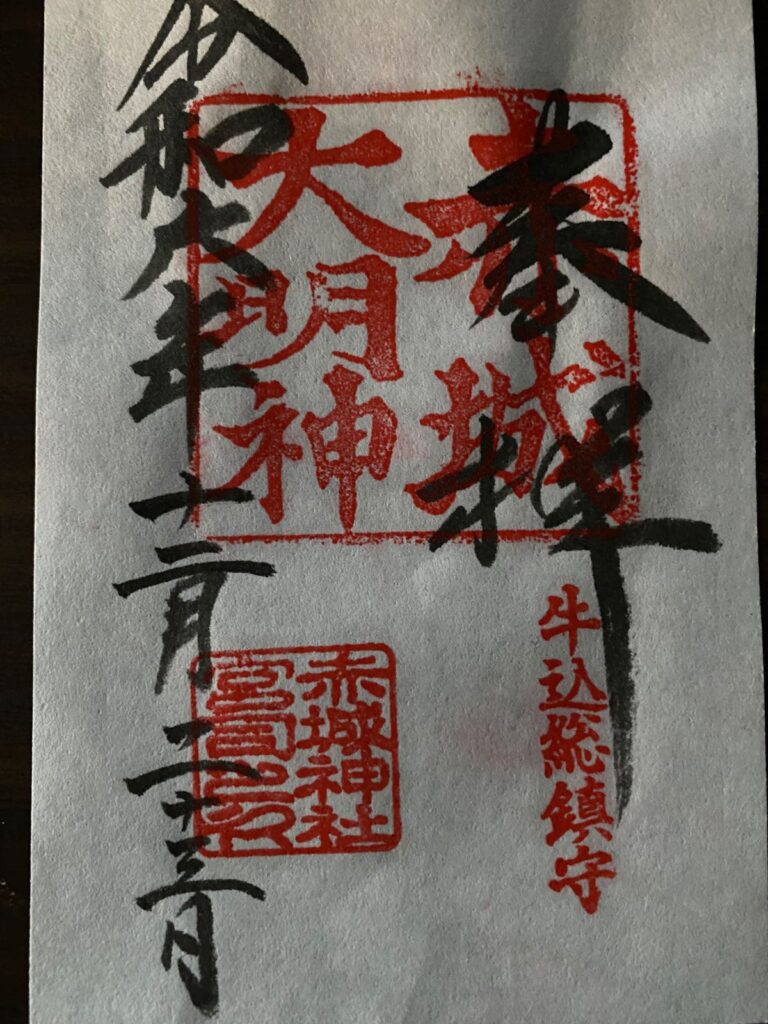 奉拝
赤城
大明神
牛込総鎮守
赤城神社
宮司之印
令和六年十二月二十三日